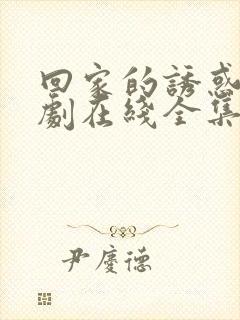 回家的誘惑
劇在綫全集
尹慶德